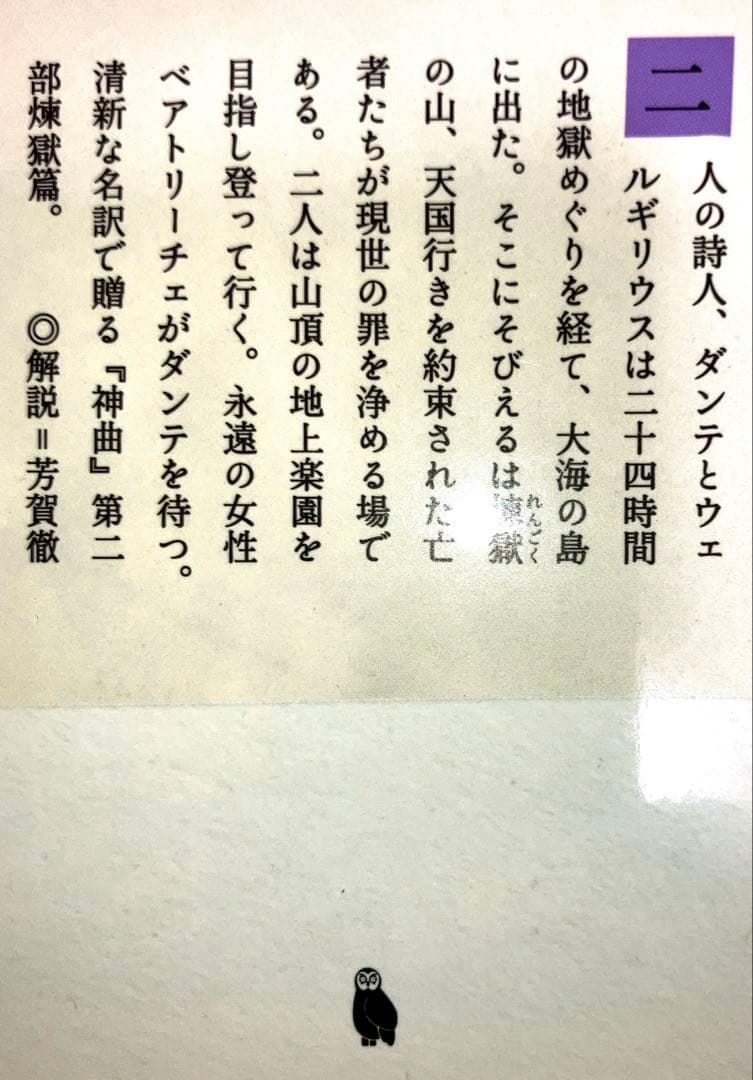 二人の詩人、ダンテとウェ
ルギリウスは二十四時間
の地獄めぐりを経て、大海の島
に出た。そこにそびえるは煉獄
れんごく
の山、天国行きを約束された亡
者たちが現世の罪を浄める場で
ある。二人は山頂の地上楽園を
目指し登って行く。永遠の女性
ベアトリーチェがダンテを待つ。
清新な名訳で贈る『神曲』第二
部煉獄篇。　◎解説＝芳賀徹